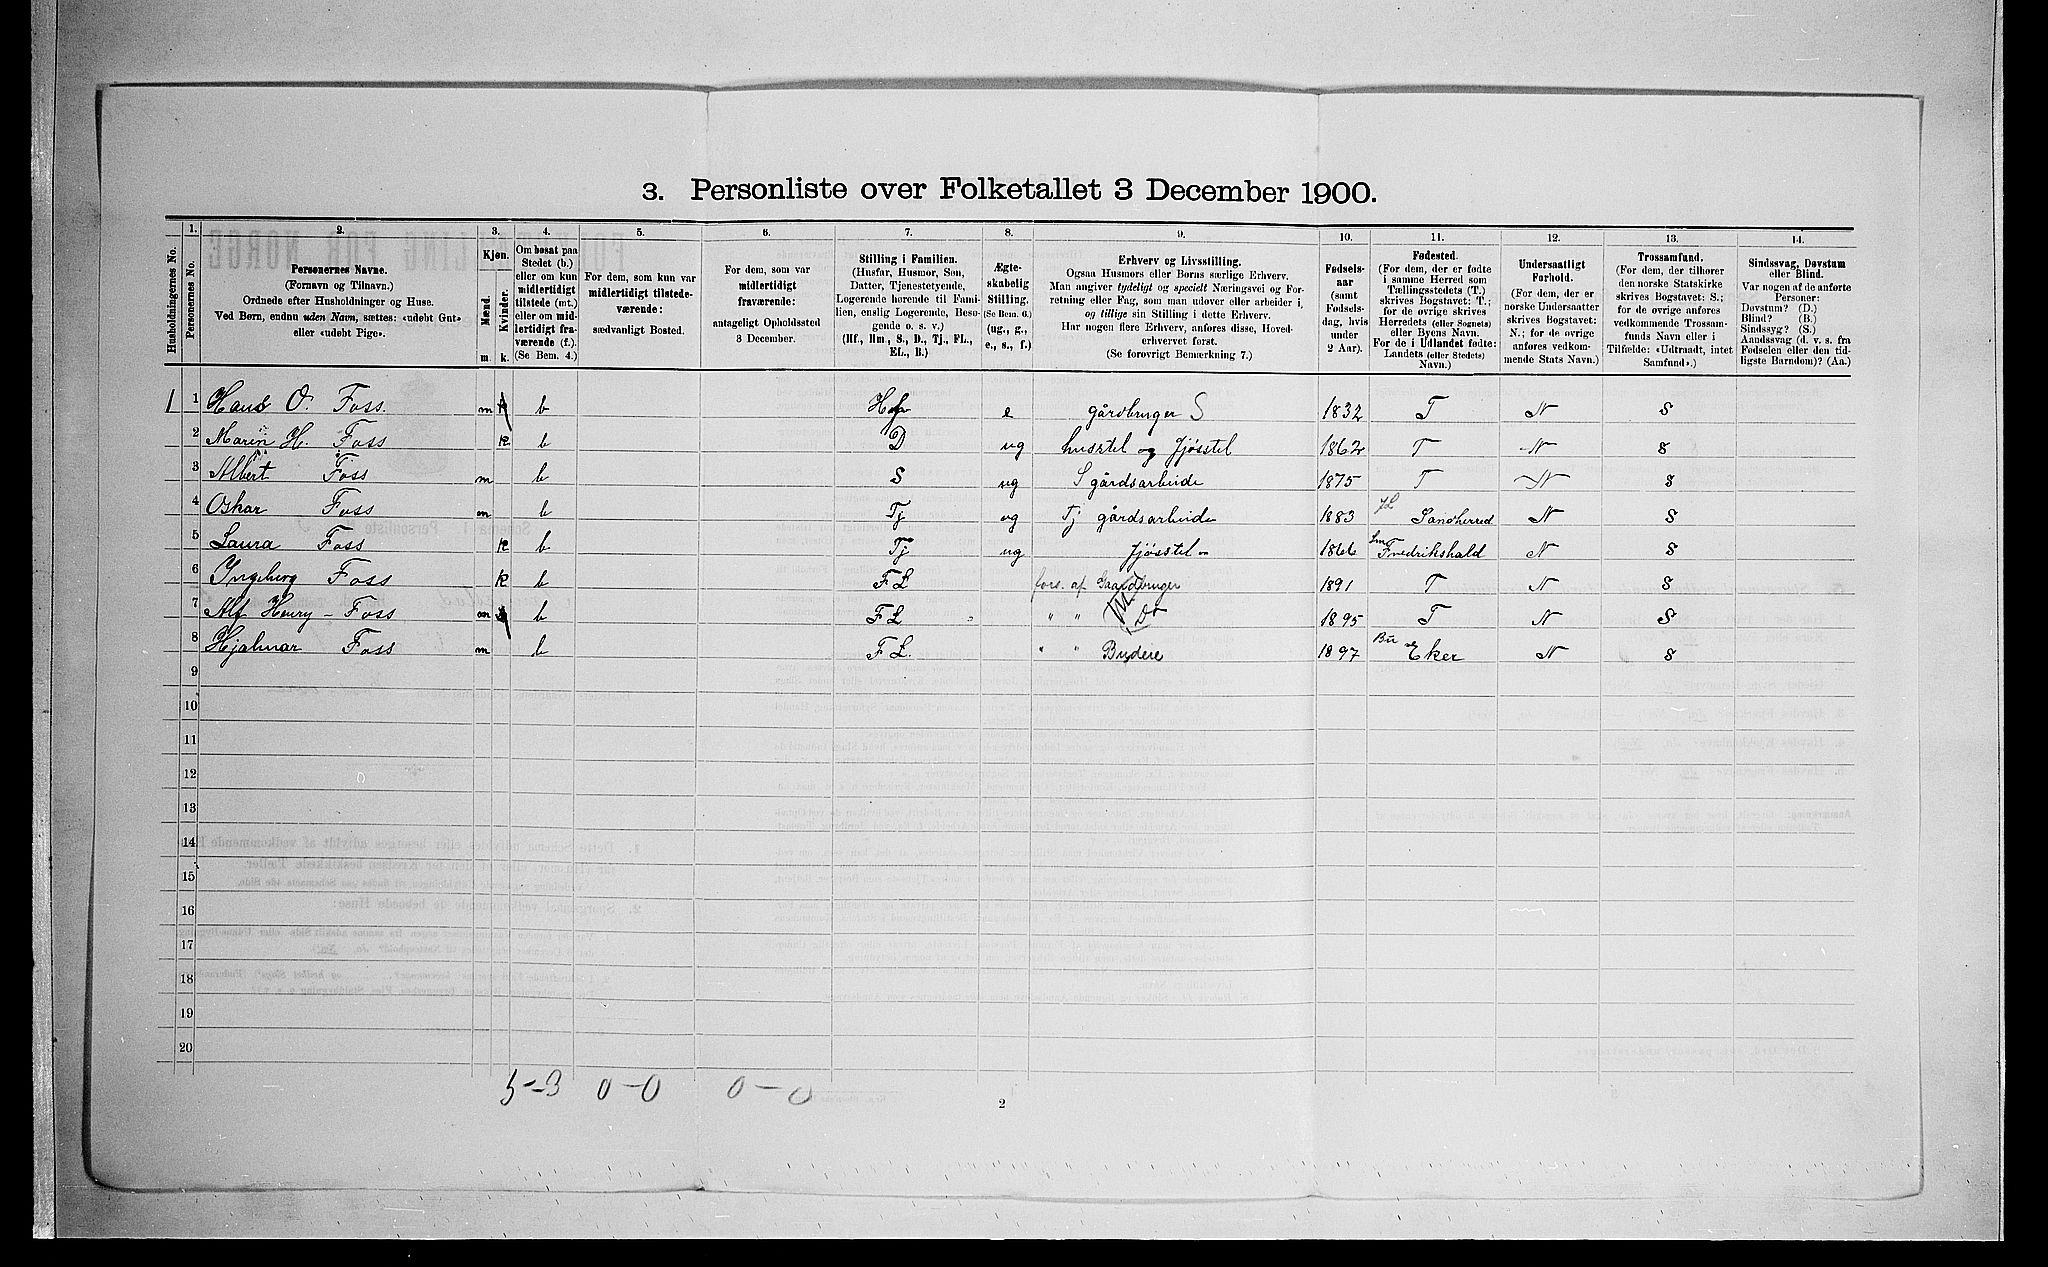 3. Personliste over Folketallet 3 December 1900.
Husholdningernes No.
1.
Personernes No.
2.
Personernes Navne.
(Fornavn og Tilnavn.)
Ordnede efter Husholdninger og Huse.
Ved Børn, endnu uden Navn, sættes: «udøbt Gut»
eller «udøbt Pige».
3.
Kjøn.
Mænd.
Kvinder.
m. k.
4.
Om bosat paa
Stedet (b.)
eller om kun
midlertidigt
tilstede (mt.)
eller om mid-
lertidigt fra-
værende (f.).
(Se Bem. 4.)
5.
For dem, som kun var
midlertidigt tilstede-
værende:
sædvanligt Bosted.
6.
For dem, som var
midlertidigt
fraværende:
antageligt Opholdssted
3 December.
7.
Stilling i Familien.
(Husfar, Husmor, Søn,
Datter, Tjenestetyende,
Logerende hørende til Fami-
lien, enslig Logerende, Besø-
gende o. s. v.)
(Hf., Hm., S., D., Tj., FL.,
EL., B.)
8.
Ægte-
skabelig
Stilling.
(Se Bem. 6.)
(ug., g.,
e., s., f.)
9.
Erhverv og Livsstilling.
Ogsaa Husmors eller Børns særlige Erhverv.
Man angiver tydeligt og specielt Næringsvei og For-
retning eller Fag, som man udover eller arbeider i,
og tillige sin Stilling i dette Erhverv.
Har nogen flere Erhverv, anføres disse, Hoved-
erhvervet først.
(Se forøvrigt Bemærkning 7.)
10.
Fødsels-
aar
(samt
Fødsels-
dag, hvis
under
2 Aar).
11.
Fødested.
(For dem, der er fødte
i samme Herred som
Tællingsstedets (T.)
skrives Bogstavet: T.;
for de øvrige skrives
Herredets (eller Sognets)
eller Byens Navn.
For de i Udlandet fødte:
Landets (eller Stedets)
Navn.)
12.
Undersaatligt
Forhold.
(For dem, der er
norske Undersaatter
skrives Bogstavet:
N.; for de øvrige
anføres vedkom-
mende Stats Navn.)
13.
Trossamfund.
(For dem, der tilhører
den norske Statskirke
skrives Bogstavet: S.;
for de øvrige anføres
vedkommende Trossam-
funds Navn eller i
Tilfælde: «Udtraadt, intet
Samfund».)
14.
Sindssvag, Døvstum
eller Blind.
Var nogen af de anførte
Personer:
Døvstum? (D.)
Blind? (B.)
Sindssyg? (S.)
Aandssvag (d. v. s. fra
Fødselen eller den tid-
ligste Barndom)? (Aa.)
1 1 Hans O. Foss. m b Hf e gårdbruger S 1832 T N S
2 Maren H. Foss k b D ug husstel og fjøsstel 1862 T N S
3 Albert Foss m b S ug S gårdsarbeide 1875 T N S
4 Oskar Foss m b Tj ug Tj gårdsarbeide 1883 JL Sandherred N S
5 Laura Foss k b Tj ug fjøsstel 1866 Sm Fredrikshald N S
6 Ingeborg Foss k b FL fors. af Gaardbruger 1891 T N S
7 Alf Henry Foss m b FL " " Do 1895 T N S
8 Hjalmar Foss m b FL. " " Budeie 1897 Bu Eker N S
9
10
11
12
13
14
15
16
17
18
19
20
5-3 0-0 0-0
2